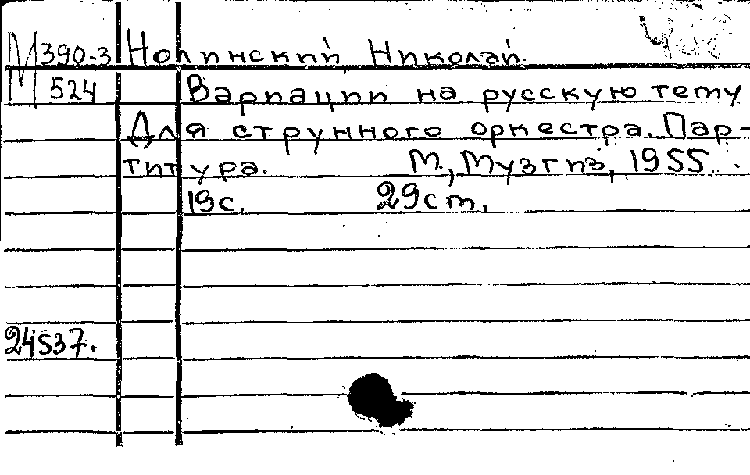 М390-3 Нолинский Николай.
М 524 Вариации на русскую тему
Для струнного оркестра. Пар-
титура. М., Музгиз, 1955.
19с. 29см.
24537.